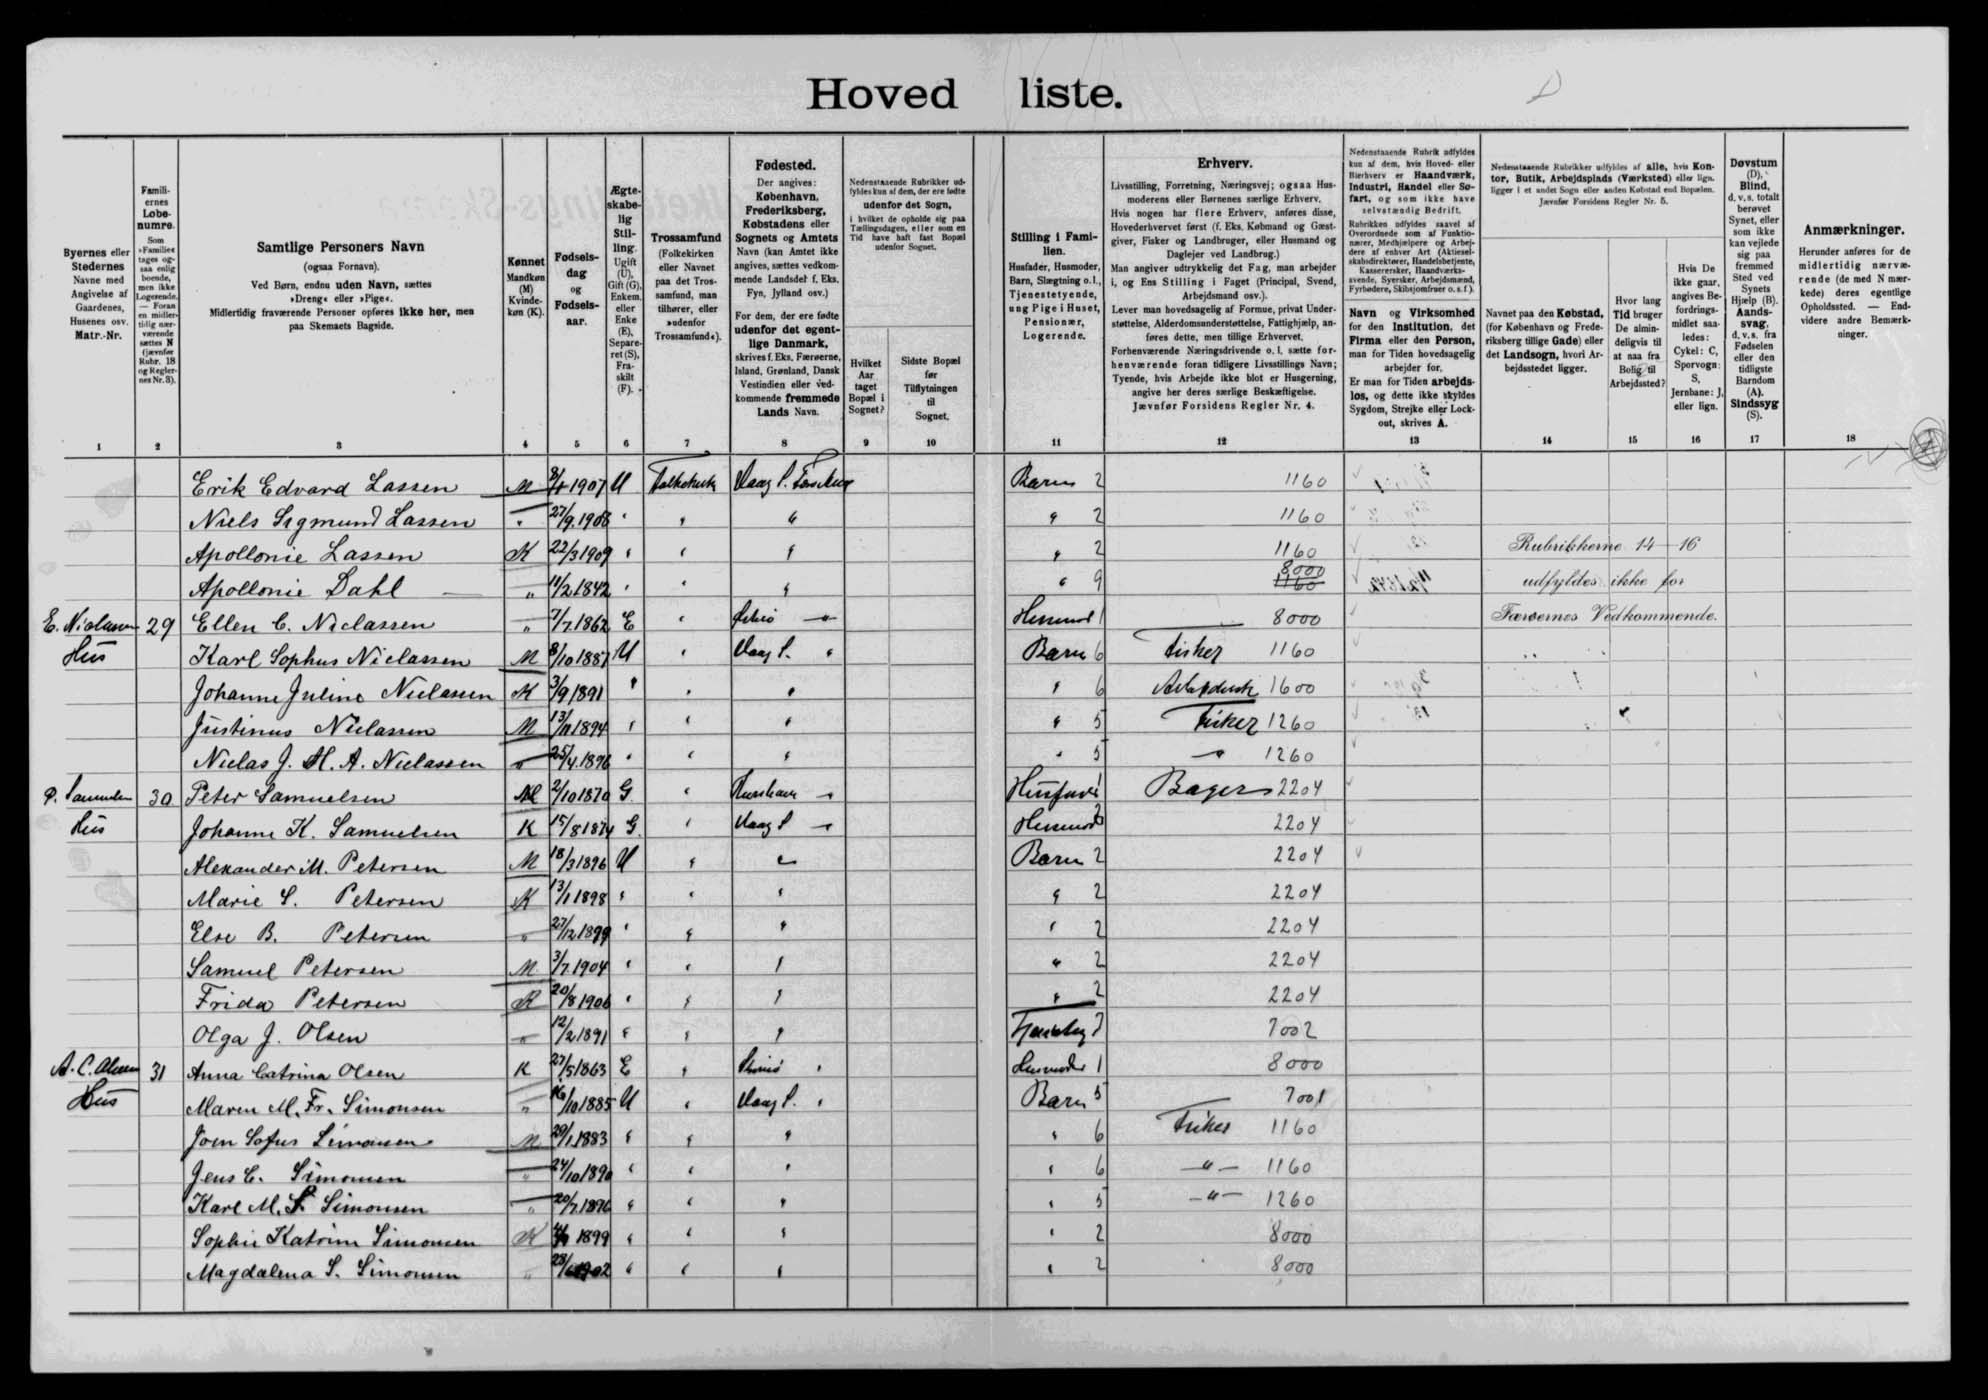 Hoved liste.
Byernes eller Stedernes Navne med Angivelse af Gaardenes, Husenes osv. Matr.-Nr.
Familiernes Løbenumre.
Som »Familie« tages ogsaa enlig boende, men ikke Logerende. — Foran en midlertidig nærværende sættes N (jævnfør Rubr. 18 og Reglernes Nr. 3).
Samtlige Personers Navn
(ogsaa Fornavn).
Ved Børn, endnu uden Navn, sættes
»Dreng« eller »Pige«.
Midlertidig fraværende Personer opføres ikke her, men
paa Skemaets Bagside.
Kønnet
Mandkøn (M) Kvindekøn (K).
Fødselsdag og Fødselsaar.
Ægteskabelig Stilling.
Ugift (U), Gift (G), Enkem. eller Enke (E), Separeret (S), Fraskilt (F).
Trossamfund
(Folkekirken eller Navnet paa det Trossamfund, man tilhører, eller »udenfor Trossamfund«).
Fødested.
Der angives: København, Frederiksberg, Købstadens eller Sognets og Amtets Navn (kan Amtet ikke angives, sættes vedkommende Landsdel f. Eks. Fyn, Jylland osv.)
For dem, der ere fødte udenfor det egentlige Danmark, skrives f. Eks. Færøerne, Island, Grønland, Dansk Vestindien eller vedkommende fremmede Lands Navn.
Nedenstaaende Rubrikker udfyldes kun af dem, der ere fødte udenfor det Sogn, i hvilket de opholde sig paa Tællingsdagen, eller som en Tid have haft fast Bopæl udenfor Sognet.
Hvilket Aar taget Bopæl i Sognet?
Sidste Bopæl før Tilflytningen til Sognet.
Stilling i Familien.
Husfader, Husmoder, Barn, Slægtning o.l., Tjenestetyende, ung Pige i Huset, Pensionær, Logerende.
Erhverv.
Livsstilling, Forretning, Næringsvej; ogsaa Husmoderens eller Børnenes særlige Erhverv.
Hvis nogen har flere Erhverv, anføres disse, Hovederhvervet først (f. Eks. Købmand og Gæstgiver, Fisker og Landbruger, eller Husmand og Daglejer ved Landbrug.)
Man angiver udtrykkelig det Fag, man arbejder i, og Ens Stilling i Faget (Principal, Svend, Arbejdsmand osv.).
Lever man hovedsagelig af Formue, privat Understøttelse, Alderdomsunderstøttelse, Fattighjælp, anføres dette, men tillige Erhvervet.
Forhenværende Næringsdrivende o. l. sætte forhenværende foran tidligere Livsstillings Navn; Tyende, hvis Arbejde ikke blot er Husgerning, angive her deres særlige Beskæftigelse.
Jævnfør Forsidens Regler Nr. 4.
Nedenstaaende Rubrik udfyldes kun af dem, hvis Hoved- eller Bierhverv er Haandværk, Industri, Handel eller Søfart, og som ikke have selvstændig Bedrift.
Rubrikken udfyldes saavel af Overordnede som af Funktionærer, Medhjælpere og Arbejdere af enhver Art (Aktieselskabsdirektører, Handelsbetjente, Kasserersker, Haandværkssvende, Syersker, Arbejdsmænd, Fyrbødere, Skibsjomfruer o. s. f.).
Navn og Virksomhed for den Institution, det Firma eller den Person, man for Tiden hovedsagelig arbejder for.
Er man for Tiden arbejdsløs, og dette ikke skyldes Sygdom, Strejke eller Lockout, skrives A.
Nedenstaaende Rubrikker udfyldes af alle, hvis Kontor, Butik, Arbejdsplads (Værksted) eller lign. ligger i et andet Sogn eller anden Købstad end Bopælen.
Jævnfør Forsidens Regler Nr. 5.
Navnet paa den Købstad, (for København og Frederiksberg tillige Gade) eller det Landsogn, hvori Arbejdsstedet ligger.
Hvor lang Tid bruger De almindeligvis til at naa fra Bolig til Arbejdssted?
Hvis De ikke gaar, angives Befordringsmidlet saaledes: Cykel: C, Sporvogn: S, Jernbane: J, eller lign.
Døvstum (D), Blind, d. v. s. totalt berøvet Synet, eller som ikke kan vejlede sig paa fremmed Sted ved Synets Hjælp (B). Aandssvag, d. v. s. fra Fødselen eller den tidligste Barndom (A). Sindssyg (S).
Anmærkninger.
Herunder anføres for de midlertidig nærværende (de med N mærkede) deres egentlige Opholdssted. — Endvidere andre Bemærkninger.
1 2 3 4 5 6 7 8 9 10 11 12 13 14 15 16 17 18
Erik Edvard Lassen M 1907 U Folkekirk Vaag S. Barn 2 1160
Niels Sigmund Lassen " 27/9.1908 " " " " 2 1160
Apollonie Lassen K 22/3 1909 " " " " 2 1160 Rubrikkerne 14–16
Apollonie Dahl " 11/2 1842 " " " " 9 8000 1160 udfyldes ikke for
E. Niclasen 29 Ellen C. Niclassen " 7/7.1862 E " Husmod 1 8000 Færøernes Vedkommende.
Hus Karl Sophus Niclassen M 8/10 1887 U " Vaag S. " Barn 6 Fisker 1160
Johanne Juline Niclassen K 3/9 1891 " " " " 6 1600
Justinus Niclassen M 13/11 1894 " " " " 5 Fisker 1260
Niclas J. H. A. Niclassen " 25/4.1896 " " " " 5 " 1260
P. Samuelsen 30 Peter Samuelsen M 2/10 1870 G. " " Husfader 1 Bager 2204
Hus Johanne K. Samuelsen K 15/8 1874 G. " Vaag S " Husmod 2204
Alexander M. Petersen M 18/3 1896 U " " Barn 2 2204
Marie S. Petersen K 13/1 1898 " " " " 2 2204
Else B. Petersen " 27/12.1899 " " " " 2 2204
Samuel Petersen M. 3/7.1904 " " " " 2 2204
Frida Petersen K 20/8 1906 " " " " 2 2204
Olga J. Olsen " 12/2 1891 " " " 7 7002
A. C. Olsen 31 Anna Catrina Olsen K 27/5 1863 E " " Husmoder 1 8000
Hus Maren M. Fr. Simonsen " 16/10 1885 U " Vaag S. " Barn 5 7001
Joen Sofus Simonsen M 29/1.1883 " " " " 6 Fisker 1160
Jens C. Simonsen " 24/10 1890 " " " " 6 –"– 1160
Karl M. S. Simonsen " 20/7.1896 " " " " 5 –"– 1260
Sophie Katrine Simonsen K 1899 " " " " 2 8000
Magdalena S. Simonsen " 1902 " " " " 2 8000